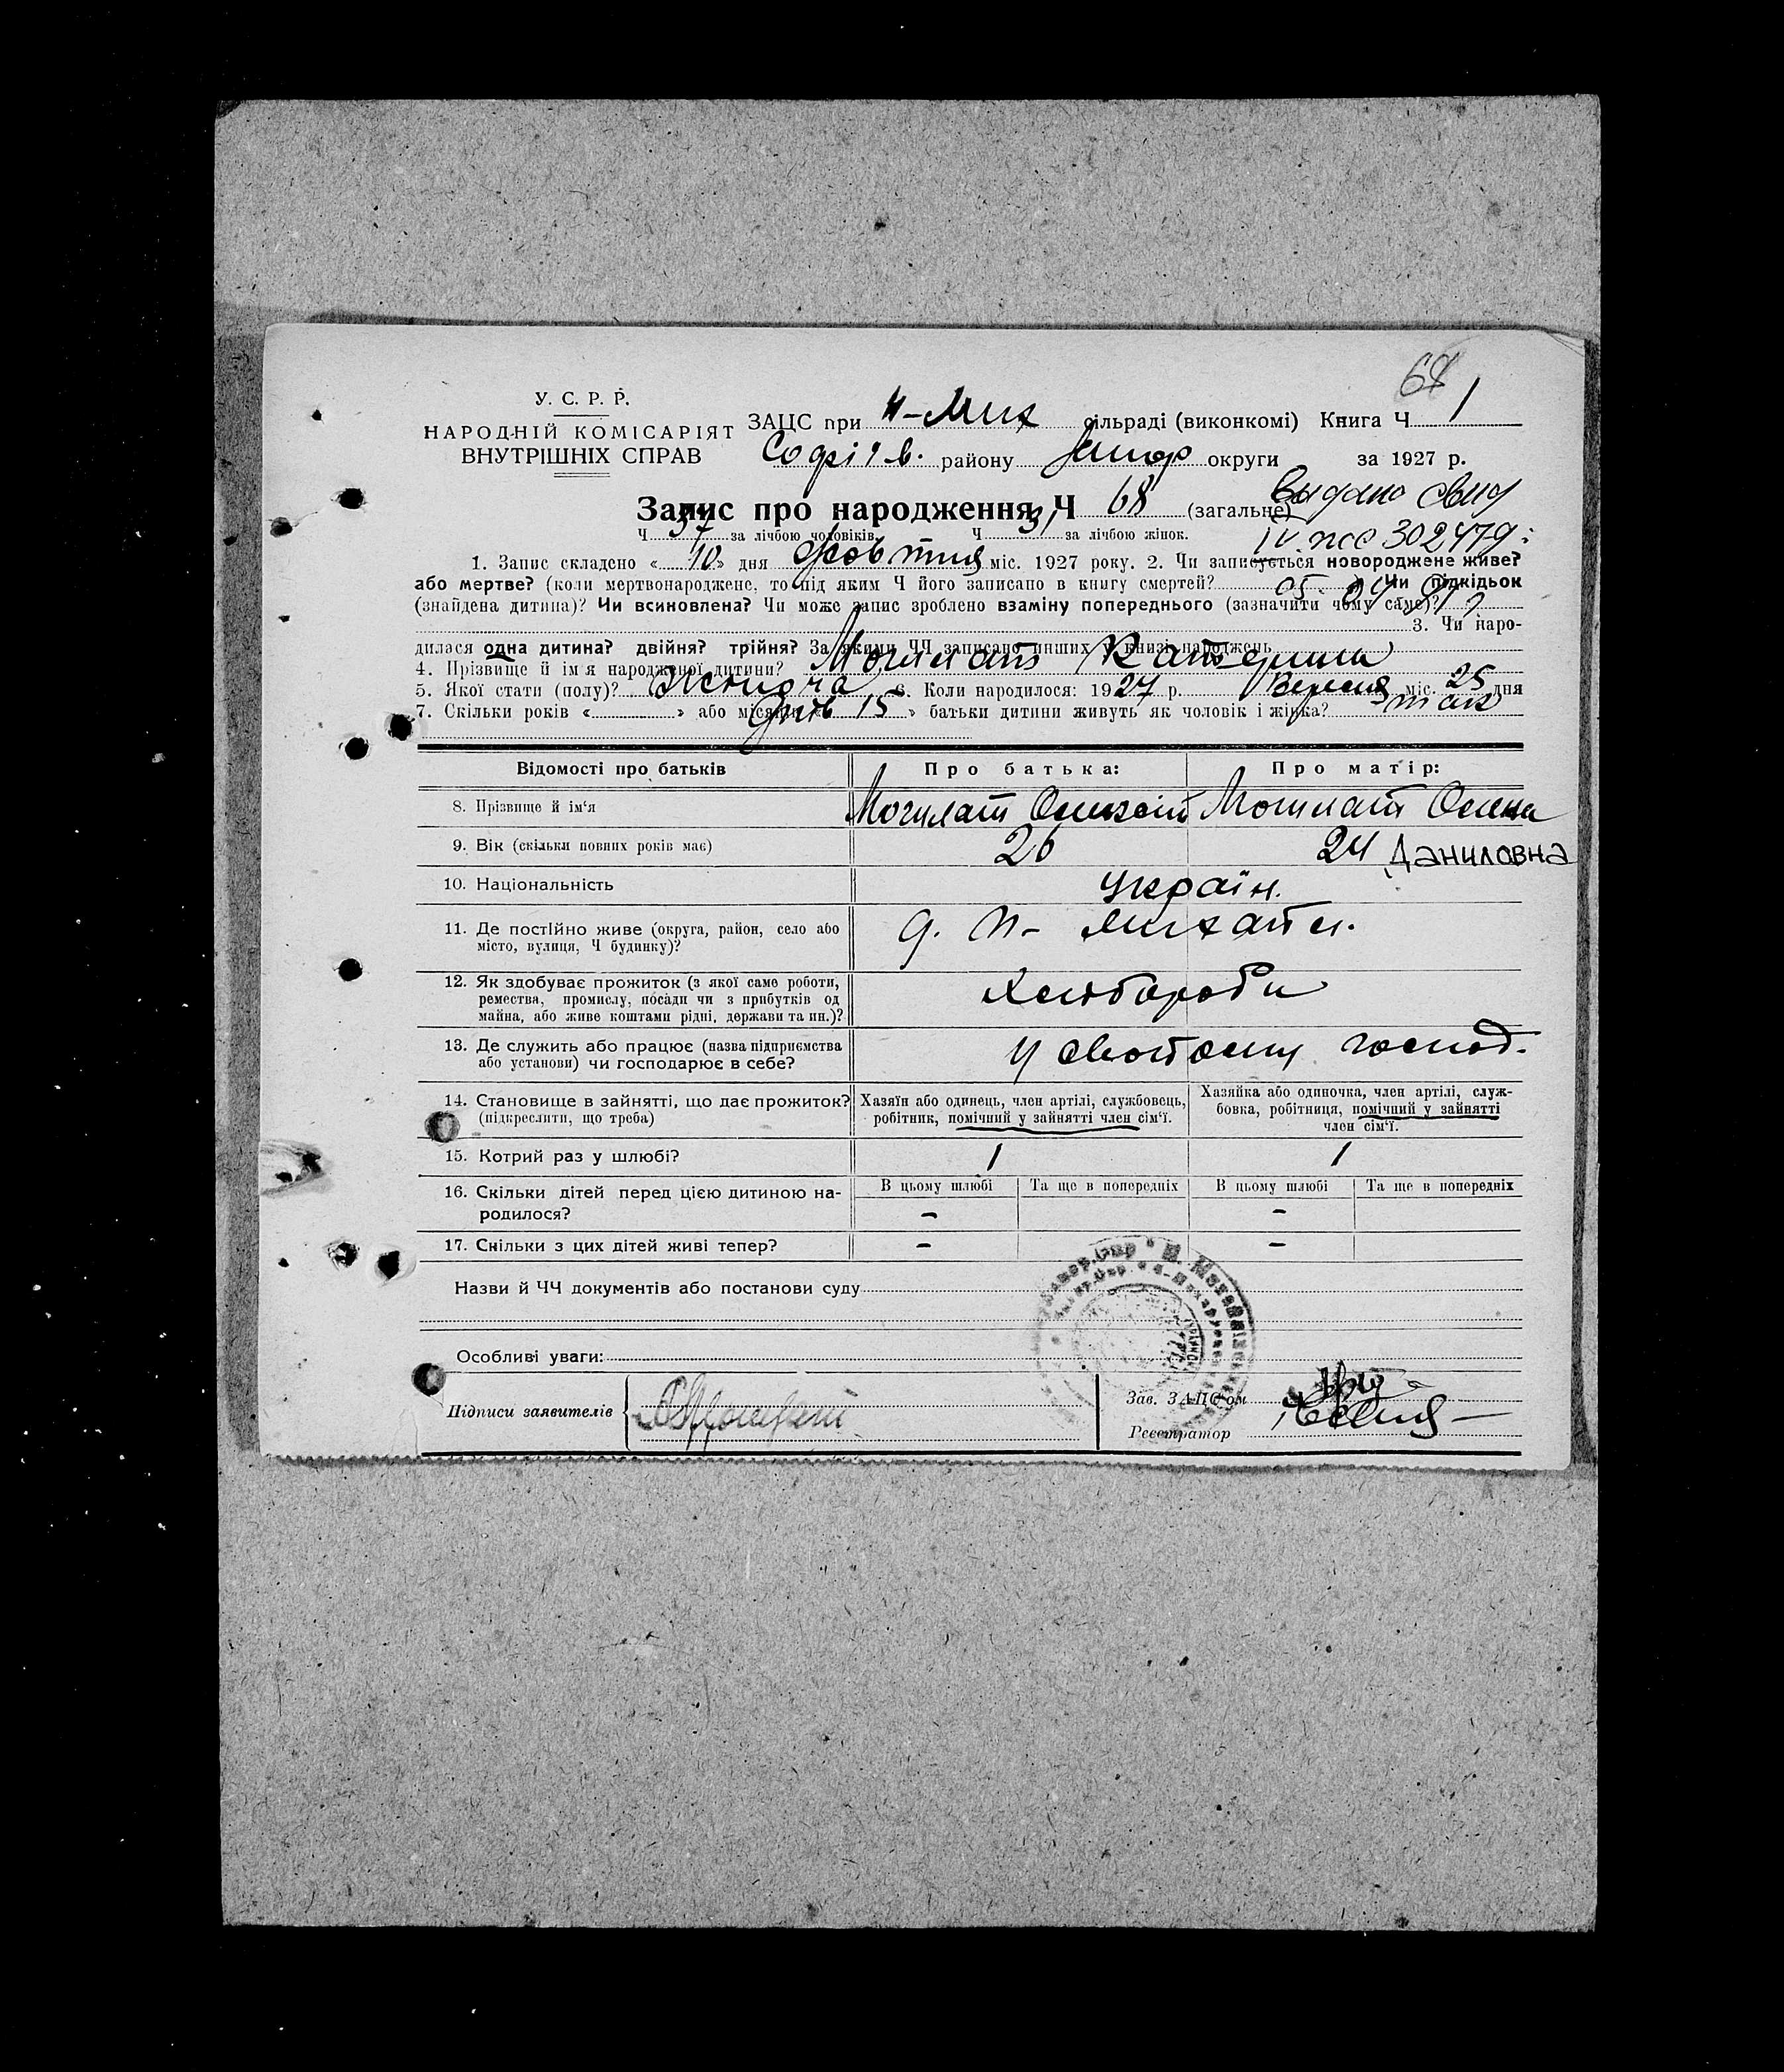 68
У. С. Р. Р.
НАРОДНІЙ КОМІСАРІЯТ
ВНУТРІШНІХ СПРАВ
ЗАЦС при Н-Мих сільраді (виконкомі) Книга Ч 1
Софіїв. району округи за 1927 р.
Запис про народження, Ч 68 (загальне)
Видано свид
Ч 37 за лічбою чоловіків. Ч 31 за лічбою жінок.
302479
1. Запис складено « 10 » дня жовтня міс. 1927 року. 2. Чи записується новороджене живе?
або мертве? (коли мертвонароджене, то під яким Ч його записано в книгу смертей? Чи підкідьок
05. 04
(знайдена дитина)? Чи всиновлена? Чи може запис зроблено взаміну попереднього (зазначити чому саме)?
3. Чи наро-
дилася одна дитина? двійня? трійня? За якими ЧЧ записано инших у книзі народжень
4. Прізвище й ім'я народженої дитини? Могилат Катерина
5. Якої стати (полу)? Жиноча 6. Коли народилося: 1927 р. Вересня міс. 25 дня
7. Скільки років « » або місяців « 15 » батьки дитини живуть як чоловік і жінка? так
Відомості про батьків Про батька: Про матір:
8. Прізвище й ім'я Могилат Олексій Могилат Олена
9. Вік (скільки повних років має) 26 24 Даниловна
10. Національність Україн.
11. Де постійно живе (округа, район, село або
місто, вулиця, Ч будинку)?
12. Як здобуває прожиток (з якої саме роботи,
ремества, промислу, посади чи з прибутків од
майна, або живе коштами рідні, держави та ин.)?
Хлібороби
13. Де служить або працює (назва підприємства
або установи) чи господарює в себе?
у своєому господ.
14. Становище в зайнятті, що дає прожиток?
(підкреслити, що треба)
Хазяїн або одинець, член артілі, службовець,
робітник, помічний у зайнятті член сім'ї.
Хазяйка або одиночка, член артілі, служ-
бовка, робітниця, помічний у зайнятті
член сім'ї.
15. Котрий раз у шлюбі? 1 1
16. Скільки дітей перед цією дитиною на-
родилося?
В цьому шлюбі Та ще в попередніх В цьому шлюбі Та ще в попередніх
- -
17. Скільки з цих дітей живі тепер? - -
Назви й ЧЧ документів або постанови суду
Особливі уваги:
Підписи заявителів
Зав. ЗАЦС'ом
Реєстратор